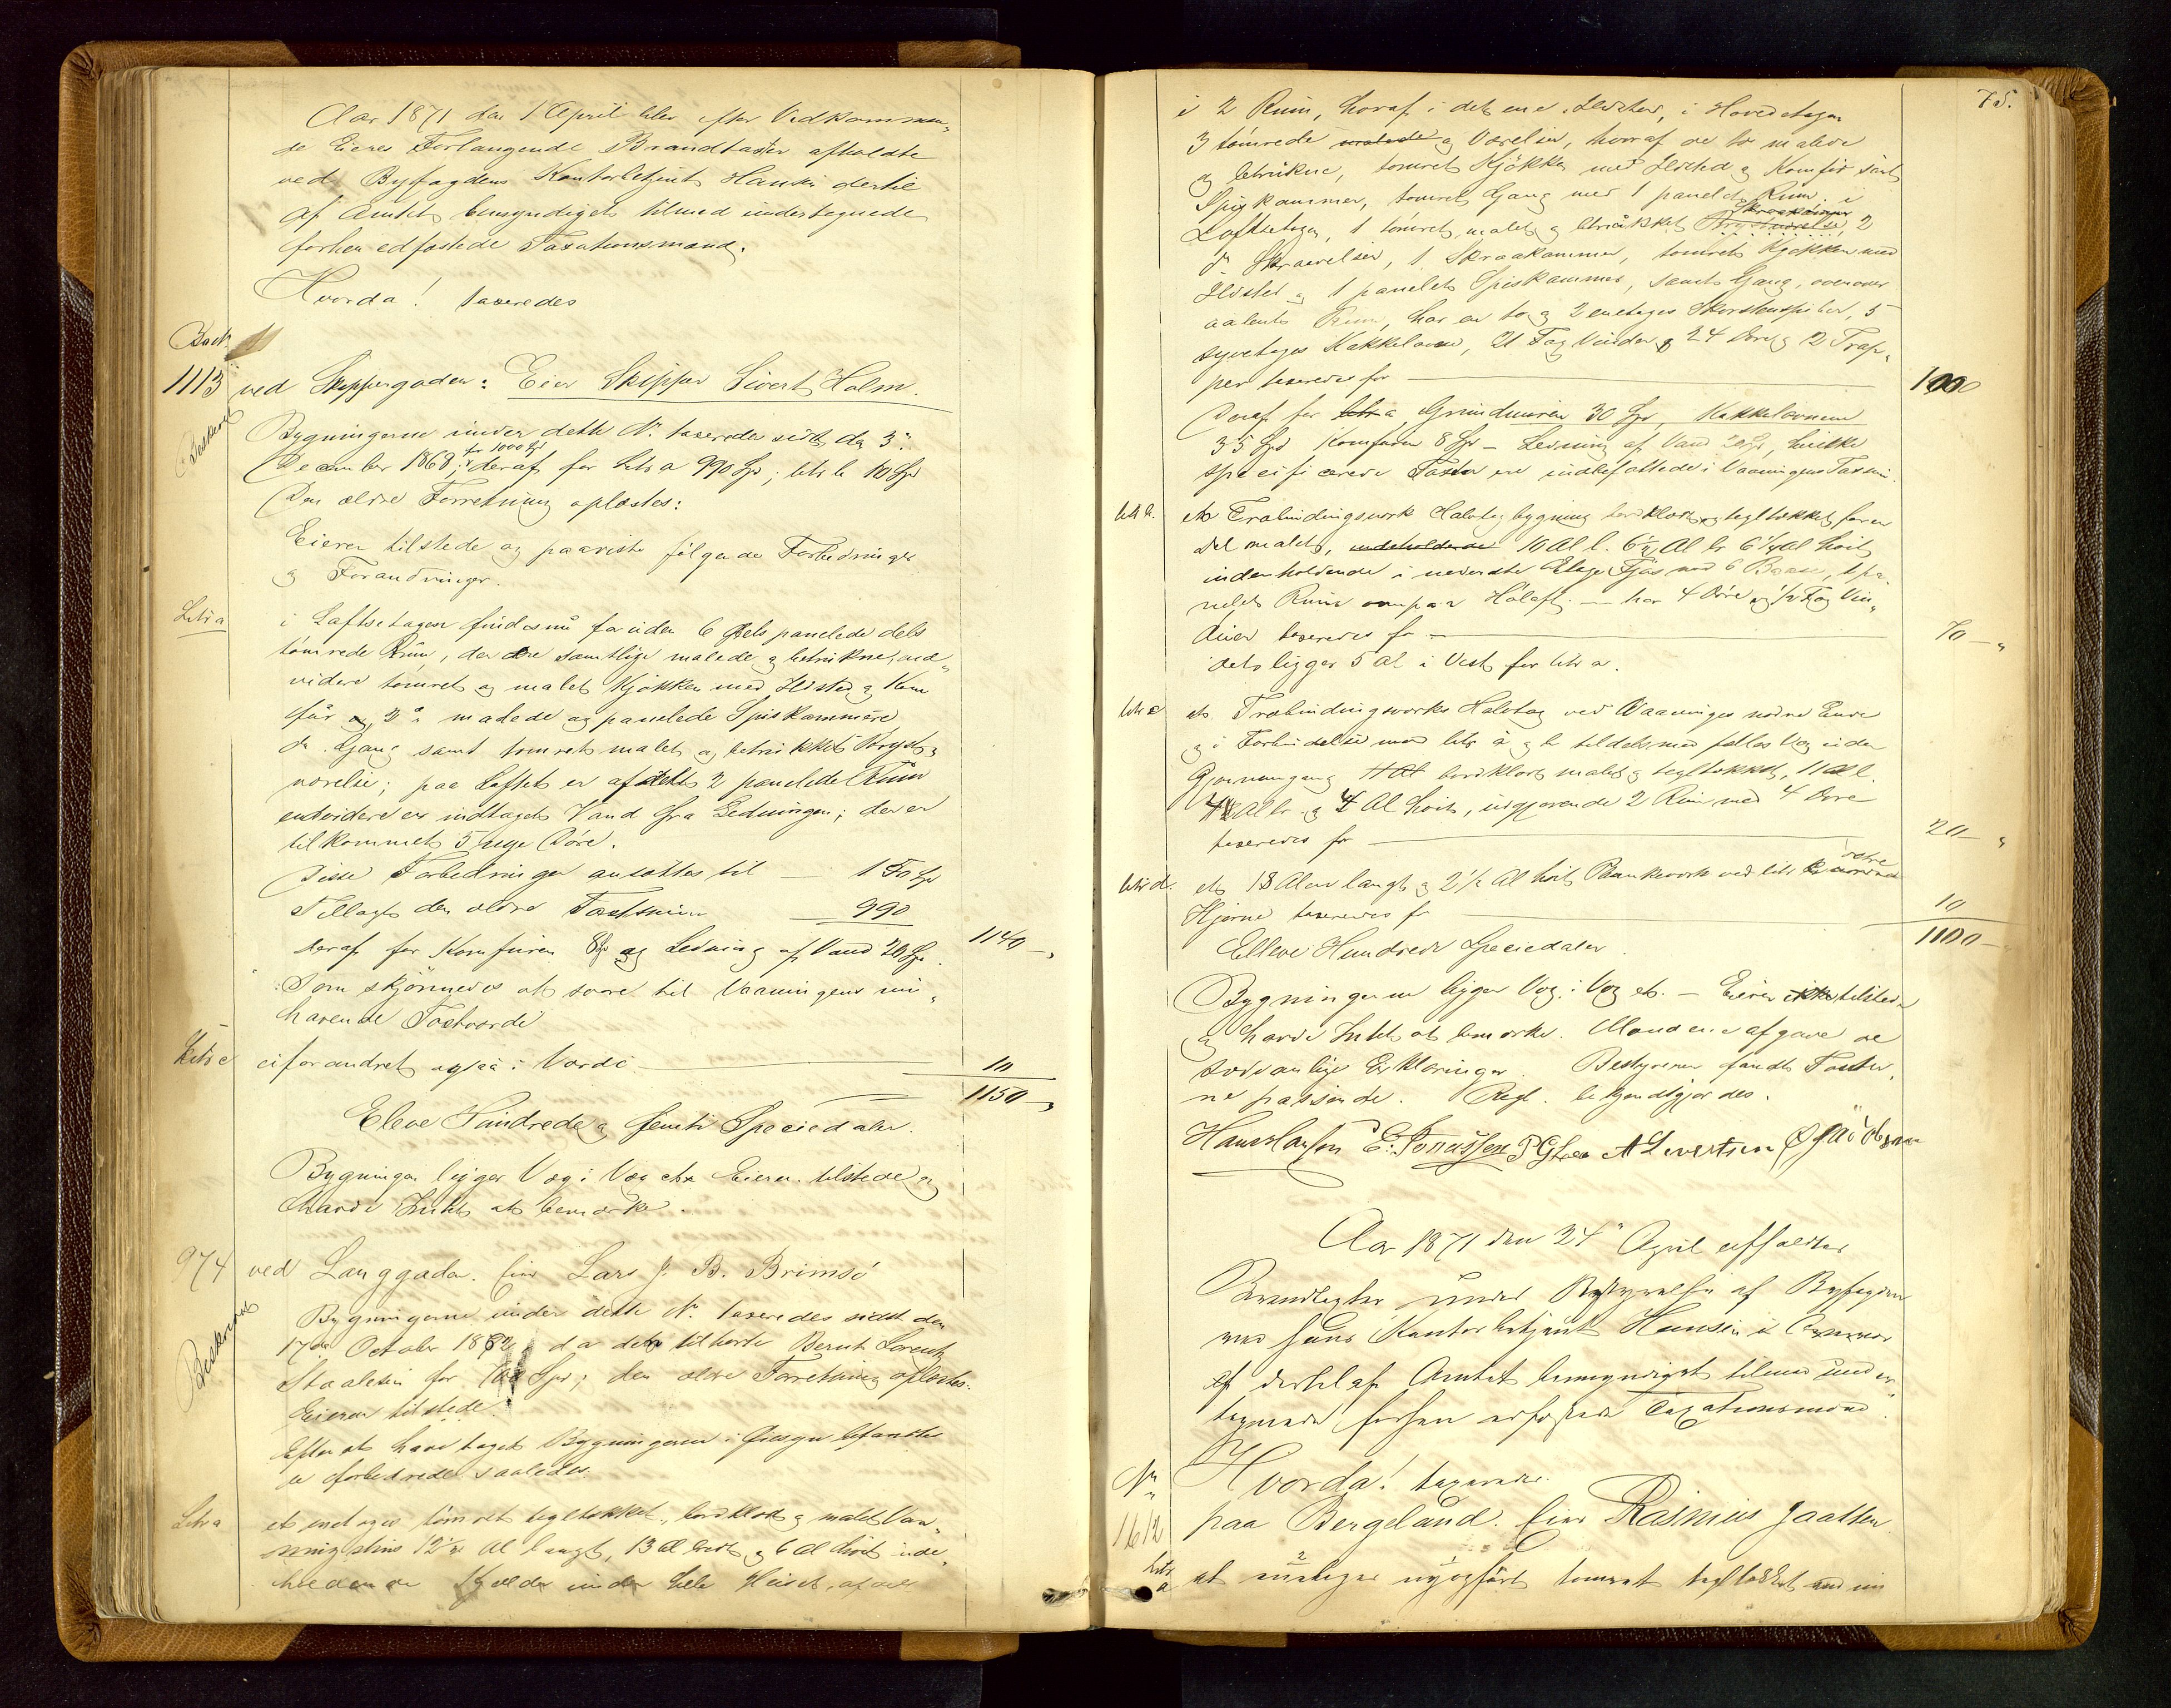 Aar 1871 den 1 April blev efter Vedkommen„
de Eieres Forlangende Brandtaxter afholdte
ved Byfogdens Kontorbetjent Hansen dertil
af Amtet bemyndiget tilmed undertegnede
forhen edfæstede Taxationsmænd.
Hvorda! taxeredes
1113 ved Skippergaden: Eier Skipper Sivert Holm.
Beskreven
Bygningerne under dette No taxeredes sidst den 3die
December 1868 for 1000 Spd, deraf for Litr a 990 Spd; litr b 10 Spd
Den ældre Forretning oplæstes:
Eieren tilstede og paaviste følgende Forbedringer
og Forandringer.
Litr a
i Loftsetagen findes nu foruden 6 dels panelede dels
tømrede Rum, der ere samtlige malede og betrukne, end„
videre tømret og malet Kjøkken med Ildsted og Kom
fur og 2de malede og panelede Spiskammere
do Gang samt tømret malet og betrukket Bryst„
værelse; paa Loftet er afdelt 2 panelede Rum
endvidere er indtaget Vand fra Ledningen; der er
tilkommet 5 nye Døre.
Disse Forbedringer ansættes til — 150 Spd
Tillagt den ældre Taxtsum — 990
1140 —„
deraf for Komfuren 8 Spd og Ledning af Vand 20 Spd.
Som skjønnedes at svare til Vaaningens nu„
havende Taxtværdi
Litr c
eiforandret ogsaa i Værdi — 10
1150 —„
Eleve Hundrede og femti Speciedaler.
Bygningen ligger Væg i Væg etc Eieren tilstede og
havde Intet at bemærke.
974 ved Langgaden. Eier Lars J. B. Brimsø
Beskreven
Bygningerne under dette No taxeredes sidst den
17de October 1862, da det tilhørte Bernt Lorentz
Staalesen for Spd; den ældre Forretning oplæstes.
Eieren tilstede.
Efter at have taget Bygningerne i Øiesyn befandtes
de forbedrede saaledes.
Litr a
et enetages tømret tegltækket, bordklædt og malet Vaa„
ningshus 12½ Al langt, 13 Al bredt og 6 Al høit inde„
holdende Kjelder under hele Huset, afdelt
75.
i 2 Rum, hvoraf i det ene Ildsted, i Hovedetagen
3 tømrede malede og Værelser, hvoraf de to malede
og betrukne, tømret Kjøkken med Ildsted og Komfur samt
Spiskammer, tømret Gang med 1 panelet Rum; i
Loftsetagen, 1 tømret, malet og betrukket Brystværelse, 2
Skraakammer
do Skraaværelser, 1 Skraakammer, tømret Kjøkken med
Ildsted og 1 panelet Spiskammer, samt Gang, ovenover
aabent Rum, har en to og 2 enetages Skorstenspiber, 5
syvetages Kakkelovne, 21 Fag Vinduer og 24 Døre og 2 Trap„
per taxeredes for — 1000
Deraf for litr a Grundmuren 30 Spd, Kakkelovnene
35 Spd Komfuren 8 Spd — Ledning af Vand 20 Spd, hvilke
specificerede Taxter ere indbefattede i Vaaningens Taxsum.
litr b.
et Træbindingsværk Halvtagbygning bordklædt og tegltækket for en
Del malet, indeholdende 10 Al l. 6½ Al br 6¼ Al høit
indeholdende i nederste Etage Fjøs med 6 Baase, 1 pa„
nelet Rum ovenpaa Høloft — har 4 Døre og ½ Fag Vin„
duer taxeredes for — 70 —„
det ligger 5 Al i Vest for litr a.
litr c
et Træbindingsværks Halvtag ved Vaaningens nordre Ende
og i Forbindelse med litr a og b tildels med fælles Væg uden
Gjennemgang bordklædt malet og tegltækket, 11 Al l.
4 Al br. og 4 Al høit, udgjørende 2 Rum med 4 Døre
taxeredes for — 20 —„
litr d.
et 18 Alen langt og 2½ Al høit Plankeværk ved litr b nordre
østre
Hjørne taxeredes for — 10
1100 —
Elleve Hundrede Speciedaler.
Bygningerne ligger Væg i Væg etc. — Eieren ikke tilstede
og havde Intet at bemærke. Mændene afgave de
sedvanlige Erklæringer. Bestyreren fandt Taxter„
ne passende. Regl. bekjendtgjordes.
Hans Larsen E. Jonassen A Sivertsen
Aar 1871 den 24de April afholdtes
Brandtaxter under Bestyrelse af Byfogden
ved hans Kontorbetjent Hansen
af dertil af Amtet bemyndiget tilmed under
tegnede forhen edfæstede Taxationsmænd.
No
Hvorda! taxeredes.
1612
paa Bergeland. Eier Rasmus Jaatten
Litr a
et 2 etages nyopført tømret tegltækket